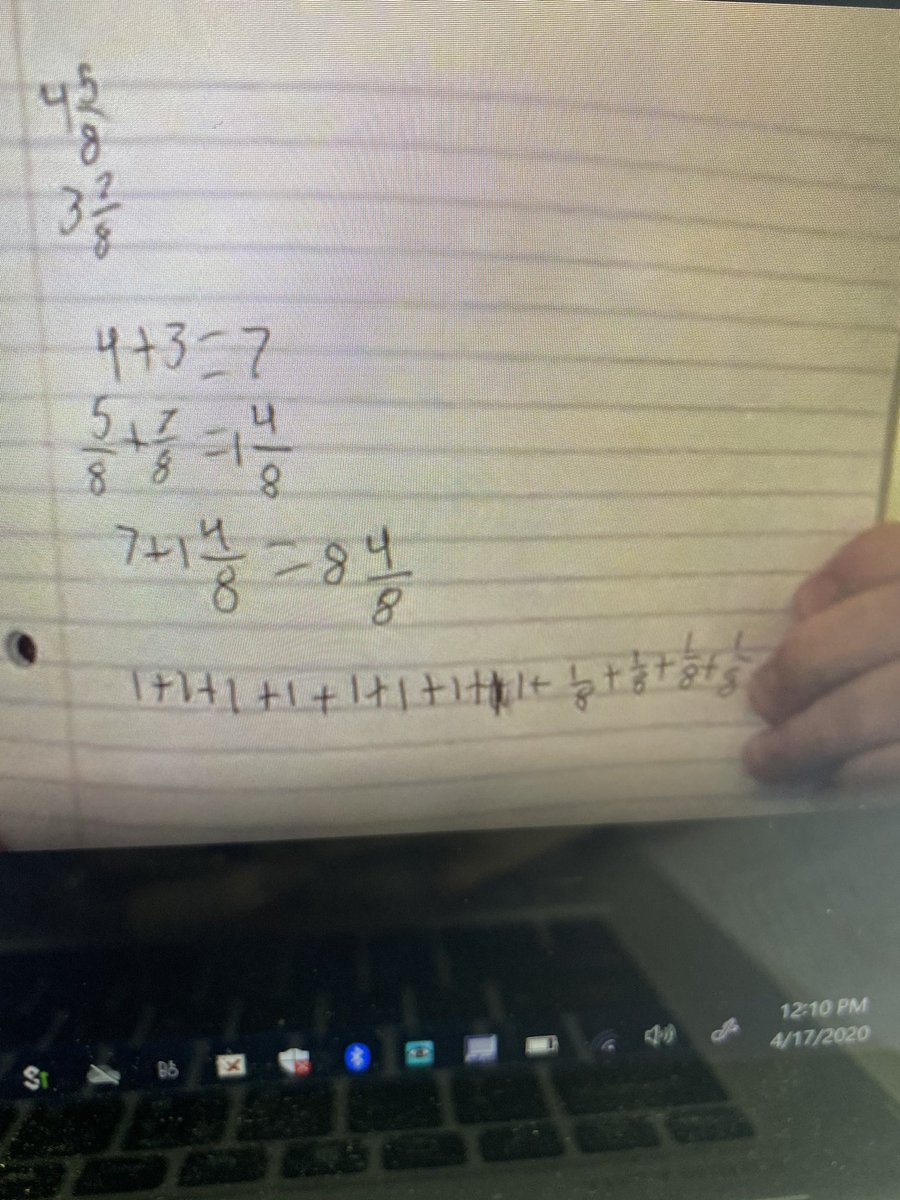 4 5/8
3 7/8
4+3=7
5/8+7/8=1 4/8
7+1 4/8=8 4/8
1+1+1+1+1+1+1+1+1/8+1/8+1/8+1/8
12:10 PM
4/17/2020